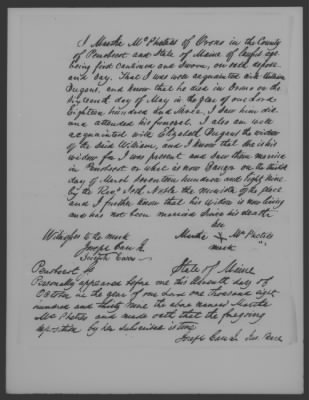 I Martha McPhetres of Orono in the County
of Penobscot and State of Maine of lawful age
being first cautioned and sworn, on oath depose
and say. That I was well acquainted with William
Dugans, and know that he died in Orono on the
day of May in the year of our Lord
Eighteen hundred and twelve. I saw him die
and attended his funeral. I also am well
acquainted with Elizabeth Dugans the widow
of the said William, and I know that she is his
widow for I was present and saw them married
in Penobscot or what is now Bangor on the
day of March seventeen hundred and Eighty nine
by the Revd. Seth Noble the minister of the place
and I further know that his widow is now living
and has not been married since his death
her
Witness to the mark Martha X McPhetres
Joseph Carr Jr. mark
Joseph
Penobscot ss State of Maine
Personally appeared before me this Eleventh day of
October in the year of our Lord one thousand eight
hundred and thirty nine the above named Martha
McPhetres and made oath that the foregoing
deposition by her subscribed is true
Joseph Carr Jr. Jus. Peace